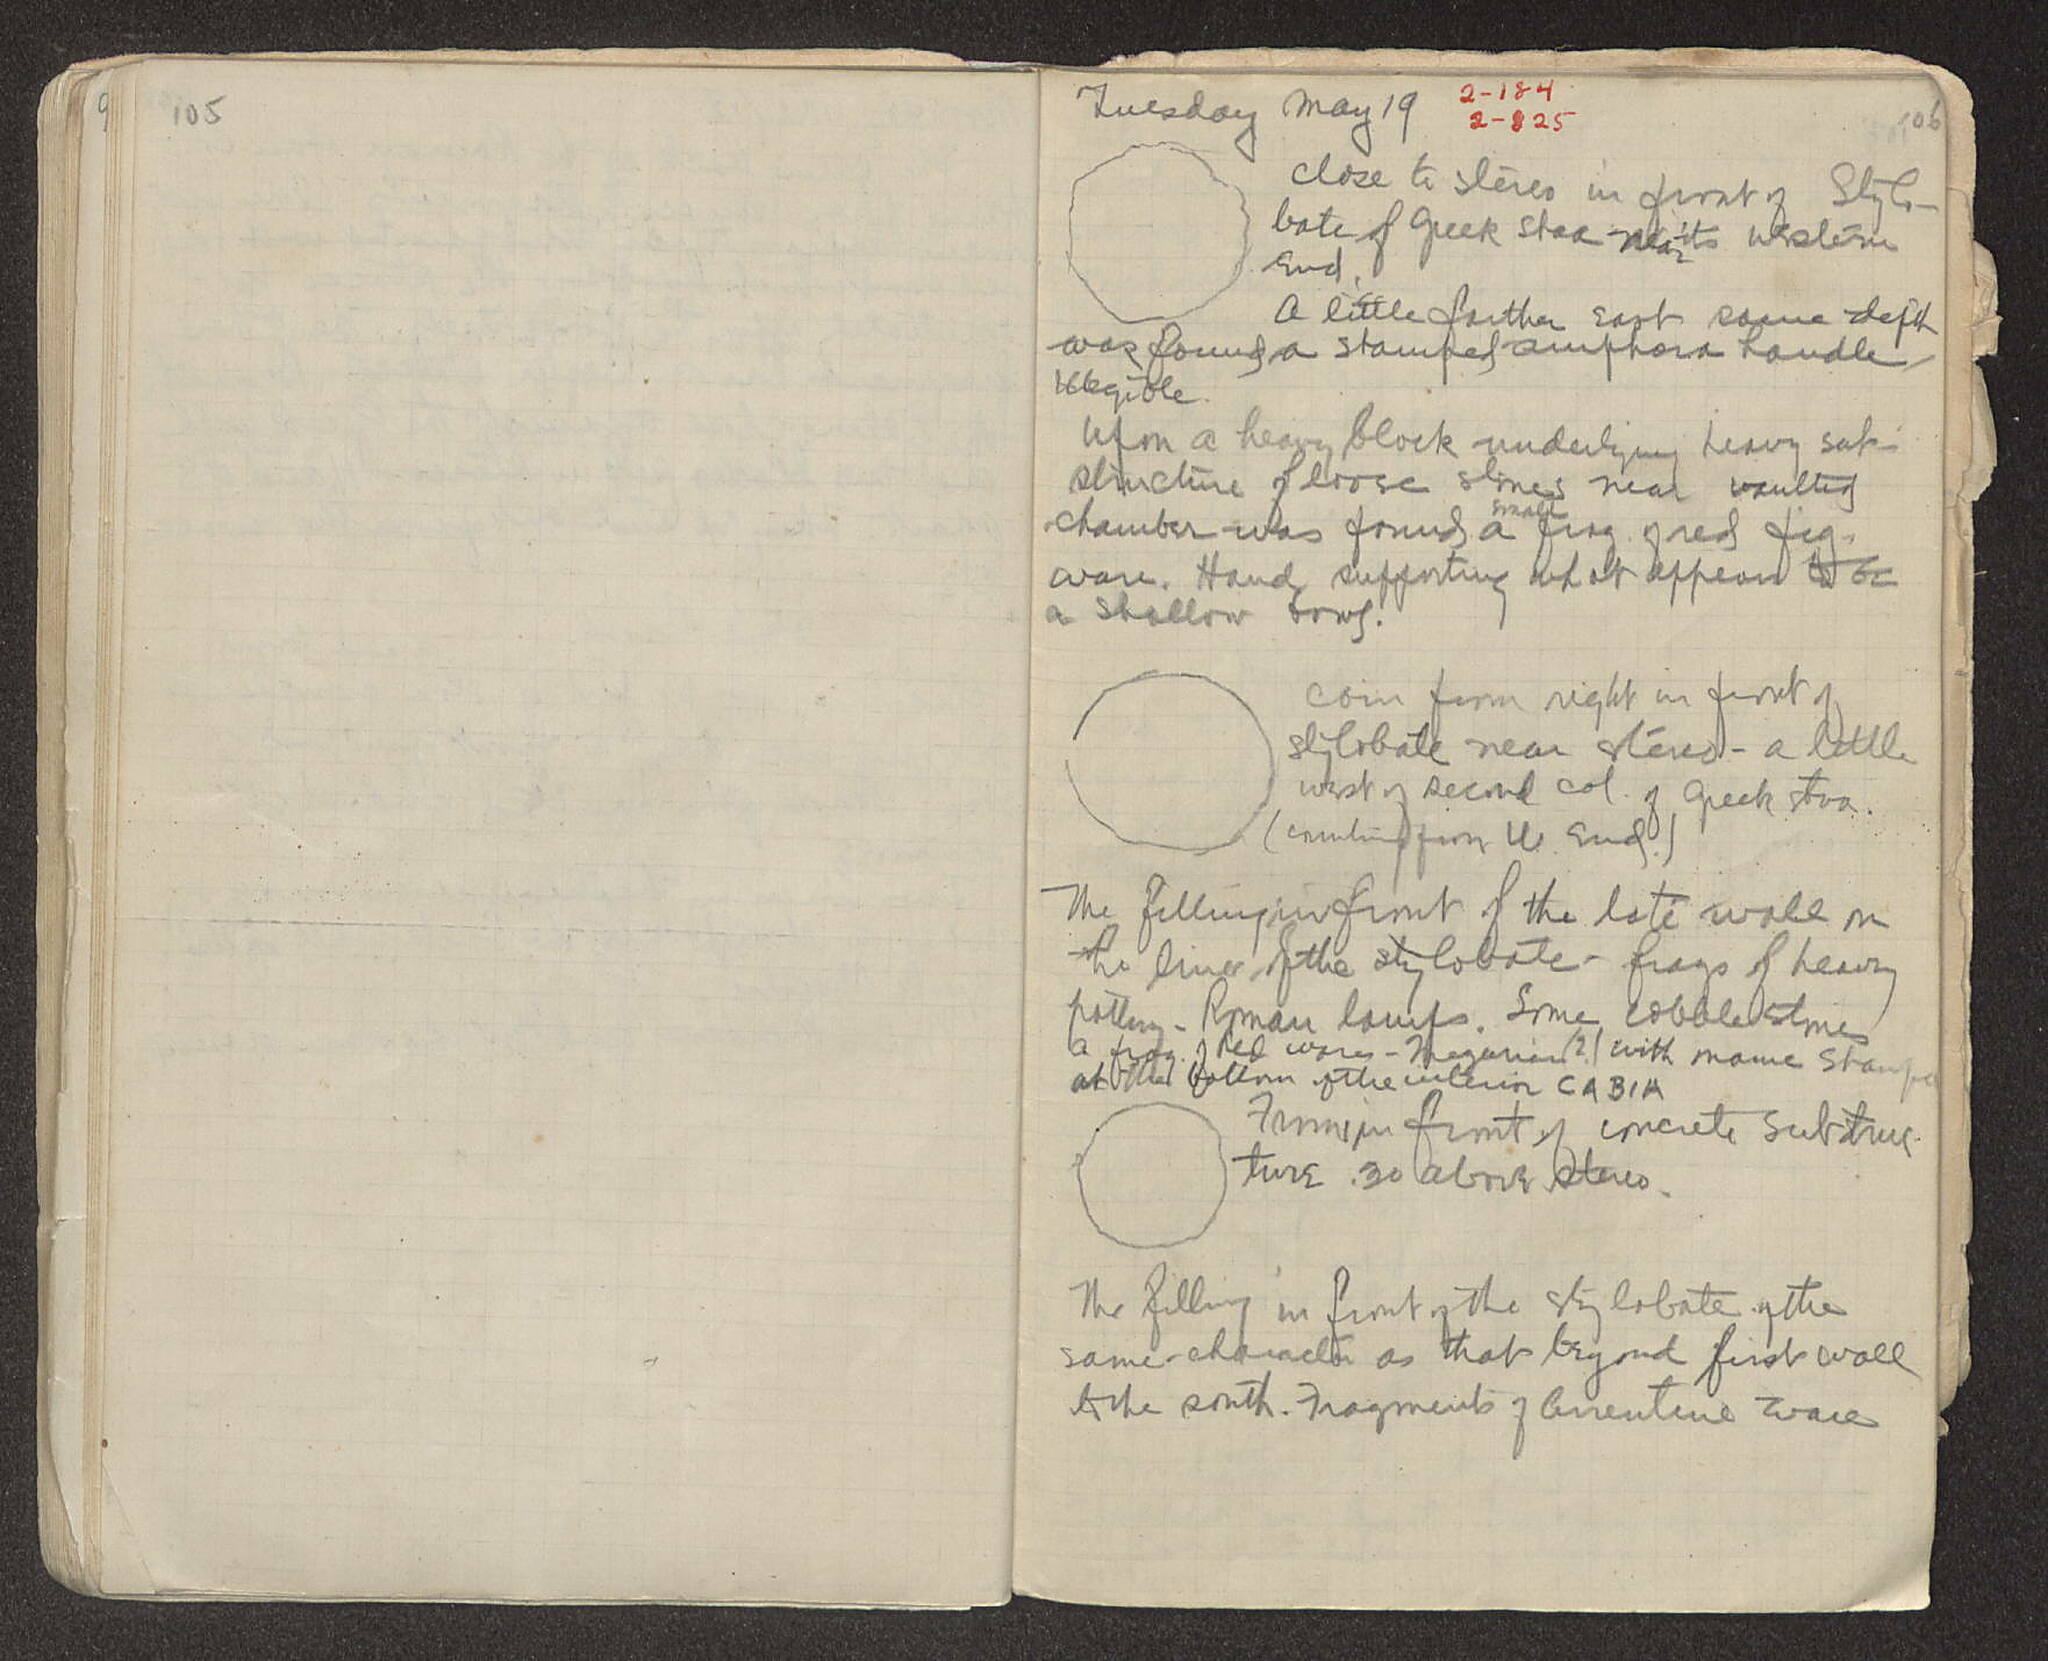 105
Tuesday May 19 2-184
2-825
106
close to stereo in front of Stylo-
bate of Greek Stoa near its western
end.
A little farther east same depth
was found a stamped amphora handle
illegible.
Upon a heavy block underlying heavy sub-
structure of loose stones near vaulted
chamber was found a small frag. of red fig.
ware. Hand supporting what appears to be
a shallow bowl.
coin from right in front of
stylobate near stereo - a little
west of second col. of Greek stoa.
(counting from W. End.)
The filling in front of the late wall on
the line of the stylobate - frags of heavy
pottery - Roman lamps. Some cobble stones
a frag. of red ware - Megarian (?) with name stamped
at the bottom of the interior CABIA
From in front of concrete substruc-
ture .30 above stereo.
The filling in front of the stylobate of the
same character as that beyond first wall
to the south. Fragments of Arrentine ware